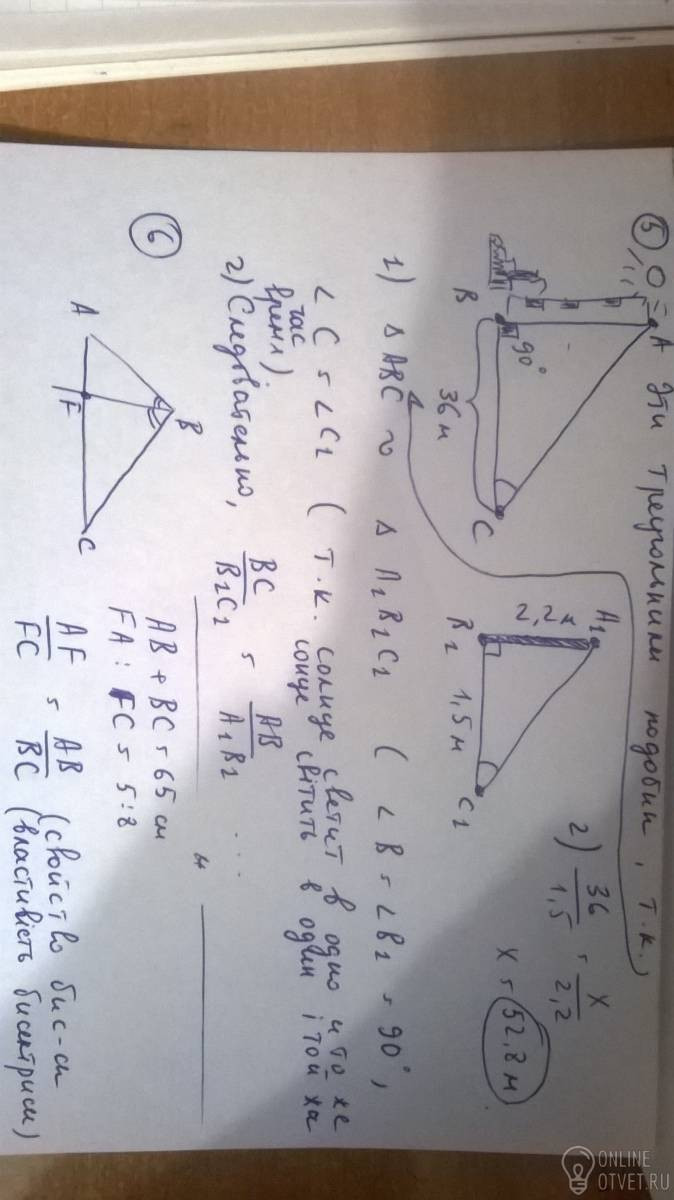 5 Эти треугольники подобны, т.к.
A
90°
B
36 м
C
A1
2,2 м
B1
1,5 м
C1
2) 36/1,5 = x/2,2
x = 52,8 м
1) Δ ABC ~ Δ A1B1C1 ( ∠B = ∠B1 = 90°,
∠C = ∠C1 ( т.к. солнце светит в одно и то же
время) сонце світить в один і той жа
час
2) Следовательно, BC/B1C1 = AB/A1B1 ...
6
A
B
C
F
AB + BC = 65 см
FA : FC = 5:8
AF/FC = AB/BC (свойство бис-си
(властивість бисектриси)
ONLINE
OTVET.RU